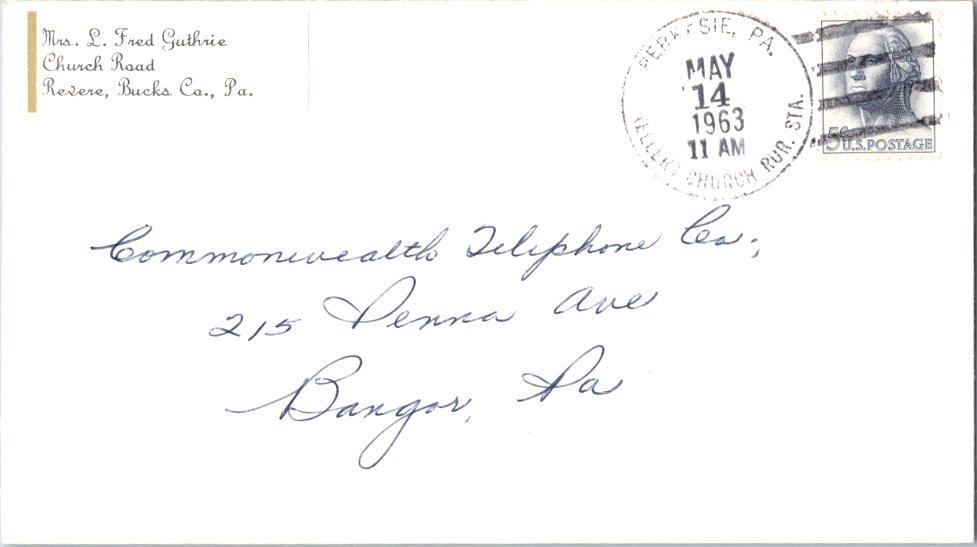 Mrs. L. Fred Guthrie
Church Road
Revere, Bucks Co., Pa.
PERKASIE, PA.
MAY
14
1963
11 AM
CHURCH RUR. STA.
5¢
U.S. POSTAGE
Commonwealth Telephone Co.,
215 Penna Ave
Bangor, Pa